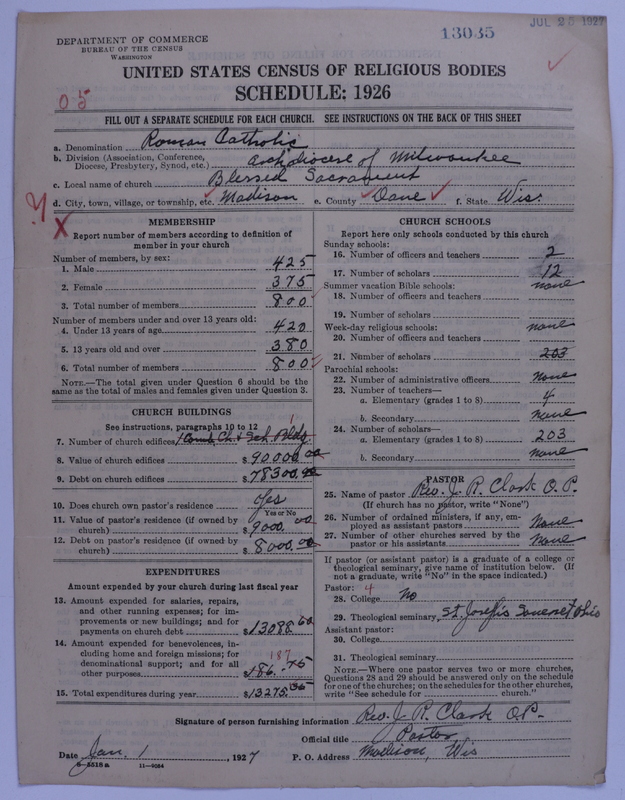 JUL 25 1927
13035
DEPARTMENT OF COMMERCE
BUREAU OF THE CENSUS
WASHINGTON
UNITED STATES CENSUS OF RELIGIOUS BODIES
SCHEDULE: 1926
05
FILL OUT A SEPARATE SCHEDULE FOR EACH CHURCH. SEE INSTRUCTIONS ON THE BACK OF THIS SHEET
a. Denomination Roman Catholic
b. Division (Association, Conference, Diocese, Presbytery, Synod, etc.) Archdiocese of Milwaukee
c. Local name of church Blessed Sacrament
d. City, town, village, or township, etc. Madison e. County Dane f. State Wis.
MEMBERSHIP
X Report number of members according to definition of
member in your church
Number of members, by sex:
1. Male 425
2. Female 375
3. Total number of members 800
Number of members under and over 13 years old:
4. Under 13 years of age 420
5. 13 years old and over 380
6. Total number of members 800
NOTE.—The total given under Question 6 should be the
same as the total of males and females given under Question 3.
CHURCH BUILDINGS
See instructions, paragraphs 10 to 12
7. Number of church edifices 1 Comb. Ch. & Sch. Bldg
8. Value of church edifices $ 90000.00
9. Debt on church edifices $ 78300.00
10. Does church own pastor's residence Yes
Yes or No
11. Value of pastor's residence (if owned by
church) $ 9000.00
12. Debt on pastor's residence (if owned by
church) $ 8000.00
EXPENDITURES
Amount expended by your church during last fiscal year
13. Amount expended for salaries, repairs,
and other running expenses; for im-
provements or new buildings; and for
payments on church debt $ 13088.60
14. Amount expended for benevolences, in-
cluding home and foreign missions; for
denominational support; and for all
other purposes 187 $ 186.75
15. Total expenditures during year $ 13275.35
CHURCH SCHOOLS
Report here only schools conducted by this church
Sunday schools:
16. Number of officers and teachers 2
17. Number of scholars 12
Summer vacation Bible schools: none
18. Number of officers and teachers
19. Number of scholars
Week-day religious schools: none
20. Number of officers and teachers
21. Number of scholars 203
Parochial schools:
22. Number of administrative officers None
23. Number of teachers—
a. Elementary (grades 1 to 8) 4
b. Secondary None
24. Number of scholars—
a. Elementary (grades 1 to 8) 203
b. Secondary none
PASTOR
25. Name of pastor Rev. J. R. Clark O.P.
(If church has no pastor, write "None")
26. Number of ordained ministers, if any, em-
ployed as assistant pastors None
27. Number of other churches served by the
pastor or his assistants None
If pastor (or assistant pastor) is a graduate of a college or
theological seminary, give name of institution below. (If
not a graduate, write "No" in the space indicated.)
Pastor: 4
28. College No
29. Theological seminary St. Joseph's Somerset Ohio
Assistant pastor:
30. College
31. Theological seminary
NOTE.—Where one pastor serves two or more churches,
Questions 28 and 29 should be answered only on the schedule
for one of the churches; on the schedules for the other churches,
write "See schedule for church."
Signature of person furnishing information Rev. J. R. Clark O.P.
Official title Pastor
Date Jan. 1, 1927 P. O. Address Madison, Wis
8-5518a 11-9034